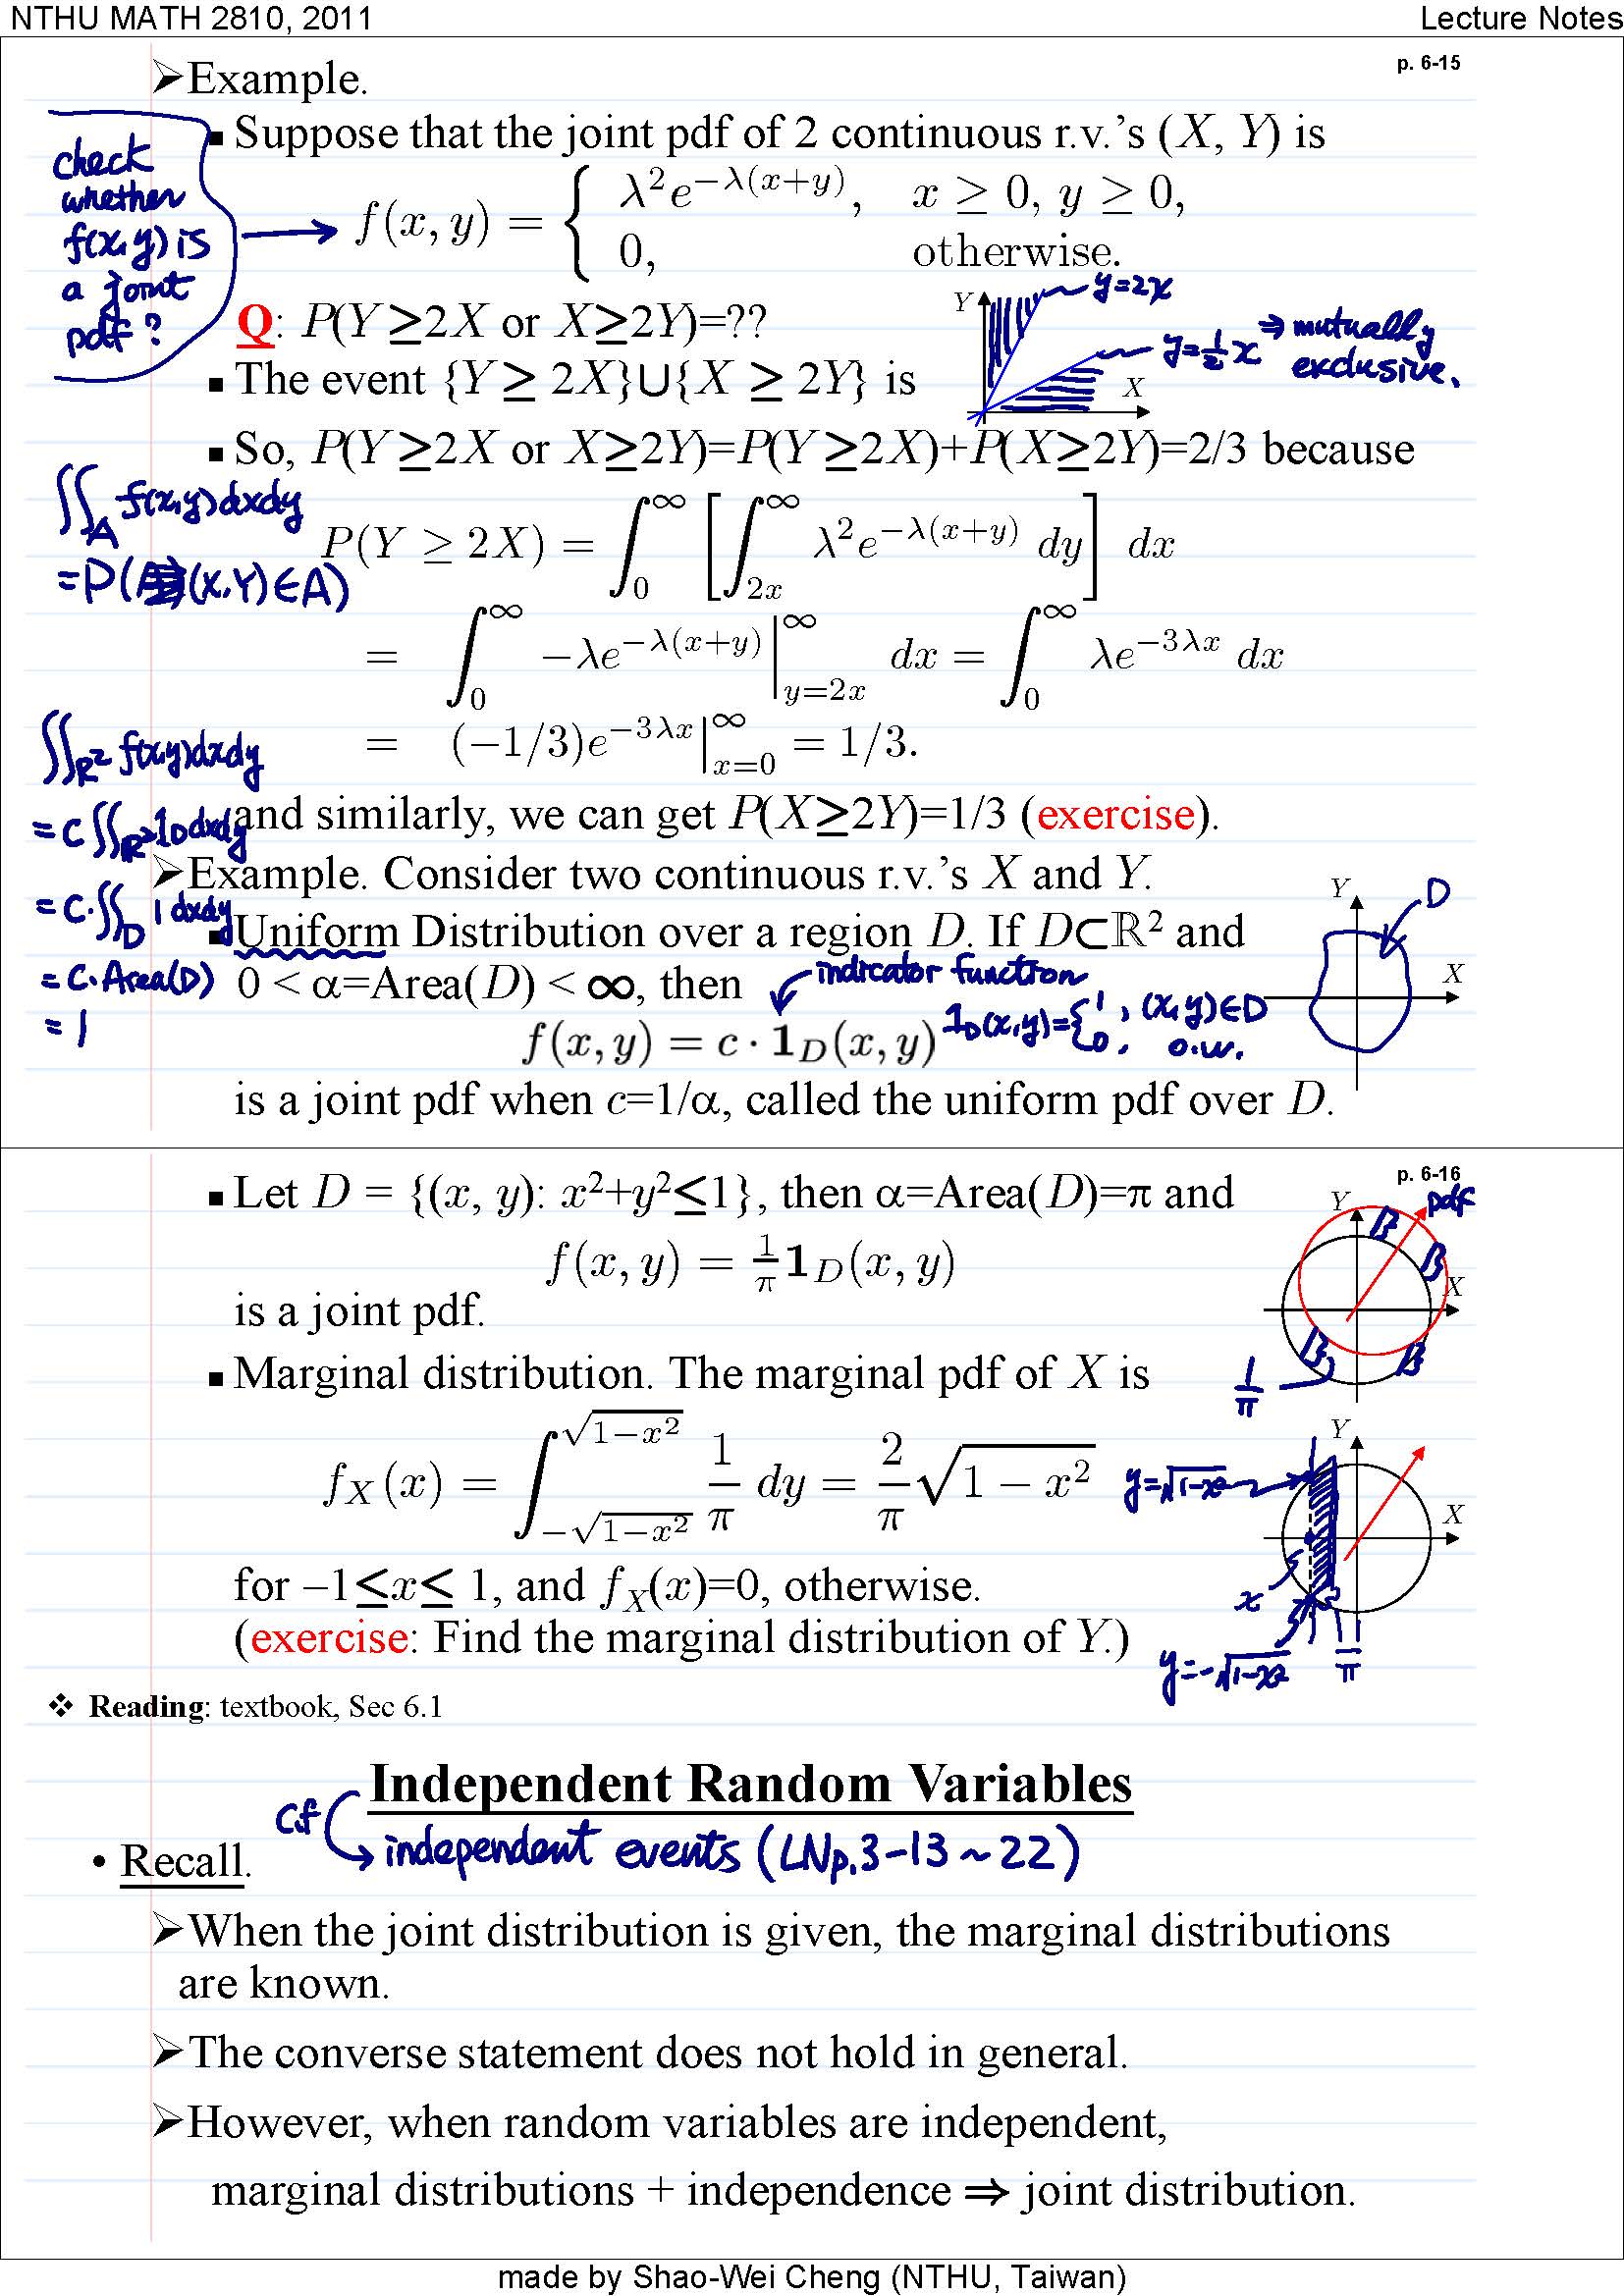 NTHU MATH 2810, 2011 Lecture Notes
p. 6-15
➢Example.
▪ Suppose that the joint pdf of 2 continuous r.v.'s (X, Y) is
check
whether
f(x,y) is
a joint
pdf?
f(x, y) = { λ²e^{−λ(x+y)}, x ≥ 0, y ≥ 0,
0, otherwise.
Q: P(Y≥2X or X≥2Y)=??
Y
X
y=2x
y=½x ⇒ mutually
exclusive.
▪ The event {Y≥ 2X}∪{X ≥ 2Y} is
▪ So, P(Y≥2X or X≥2Y)=P(Y≥2X)+P(X≥2Y)=2/3 because
∬_A f(x,y)dxdy
=P((X,Y)∈A)
P(Y ≥ 2X) = ∫_0^∞ [∫_{2x}^∞ λ²e^{−λ(x+y)} dy] dx
= ∫_0^∞ −λe^{−λ(x+y)}|_{y=2x}^∞ dx = ∫_0^∞ λe^{−3λx} dx
= (−1/3)e^{−3λx}|_{x=0}^∞ = 1/3.
∬_{R²} f(x,y)dxdy
= c∬_{R²} 1_D dxdy
= c·∬_D 1 dxdy
= c·Area(D)
= 1
and similarly, we can get P(X≥2Y)=1/3 (exercise).
➢Example. Consider two continuous r.v.'s X and Y.
▪ Uniform Distribution over a region D. If D⊂ℝ² and
0 < α=Area(D) < ∞, then
Y
X
D
indicator function
f(x, y) = c · 1_D(x, y)
1_D(x,y)={1, (x,y)∈D
0, o.w.
is a joint pdf when c=1/α, called the uniform pdf over D.
p. 6-16
▪ Let D = {(x, y): x²+y²≤1}, then α=Area(D)=π and
f(x, y) = 1/π 1_D(x, y)
is a joint pdf.
Y
X
pdf
1/π
▪ Marginal distribution. The marginal pdf of X is
f_X(x) = ∫_{−√(1−x²)}^{√(1−x²)} 1/π dy = 2/π √(1 − x²)
Y
X
y=√(1-x²)
x
y=-√(1-x²)
1/π
for –1≤x≤ 1, and f_X(x)=0, otherwise.
(exercise: Find the marginal distribution of Y.)
❖ Reading: textbook, Sec 6.1
Independent Random Variables
c.f
independent events (LNp.3-13~22)
• Recall.
➢When the joint distribution is given, the marginal distributions
are known.
➢The converse statement does not hold in general.
➢However, when random variables are independent,
marginal distributions + independence ⇒ joint distribution.
made by Shao-Wei Cheng (NTHU, Taiwan)